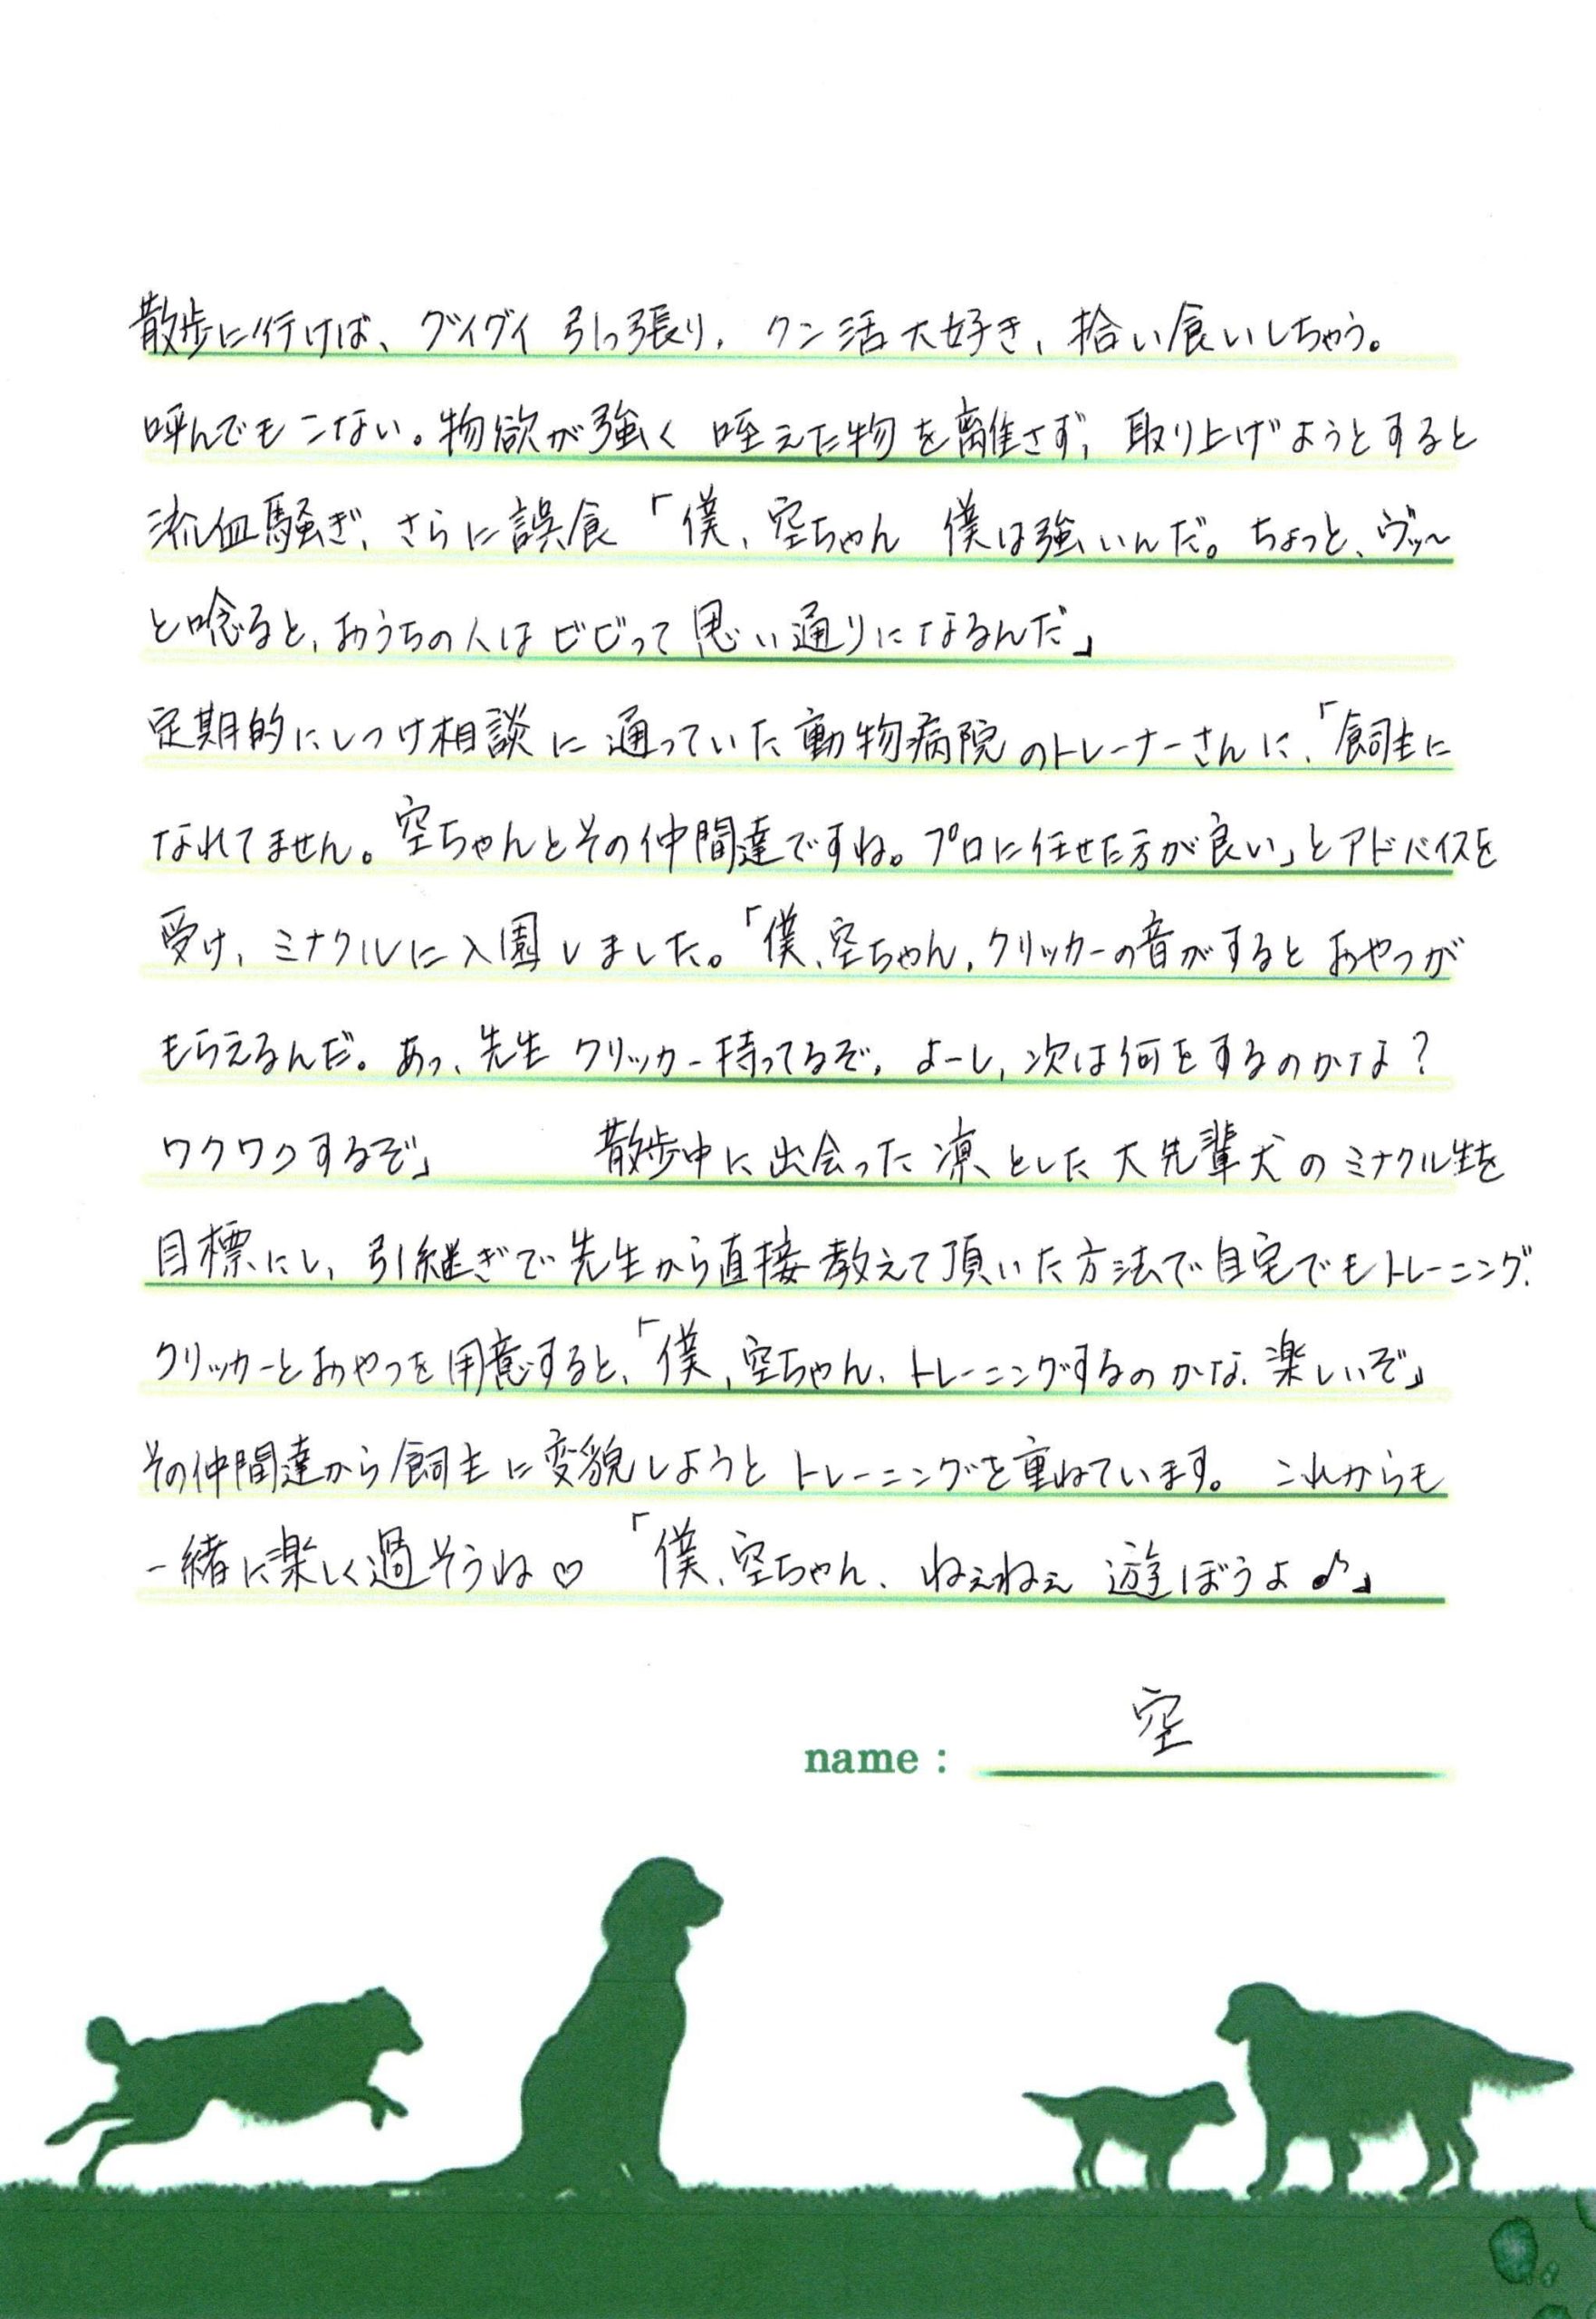 散歩に行けば、グイグイ引っ張り、クン活大好き、拾い食いしちゃう。
呼んでもこない。物欲が強く 咥えた物を離さず、取り上げようとすると
流血騒ぎ、さらに誤食「僕、空ちゃん 僕は強いんだ。ちょっと、ヴッ〜
と唸ると、おうちの人はビビって思い通りになるんだ」
定期的にしつけ相談に通っていた動物病院のトレーナーさんに、「飼主に
なれてません。空ちゃんとその仲間達ですね。プロに任せた方が良い」とアドバイスを
受け、ミナクルに入園しました。「僕、空ちゃん、クリッカーの音がするとおやつが
もらえるんだ。あっ、先生 クリッカー持ってるぞ。よーし、次は何をするのかな？
ワクワクするぞ」 散歩中に出会った凛とした大先輩犬のミナクル生を
目標にし、引継ぎで先生から直接教えて頂いた方法で自宅でもトレーニング。
クリッカーとおやつを用意すると、「僕、空ちゃん、トレーニングするのかな、楽しいぞ」
その仲間達から飼主に変貌しようとトレーニングを重ねています。 これからも
一緒に楽しく過そうね♡ 「僕、空ちゃん、ねぇねぇ 遊ぼうよ♪」
name : 空